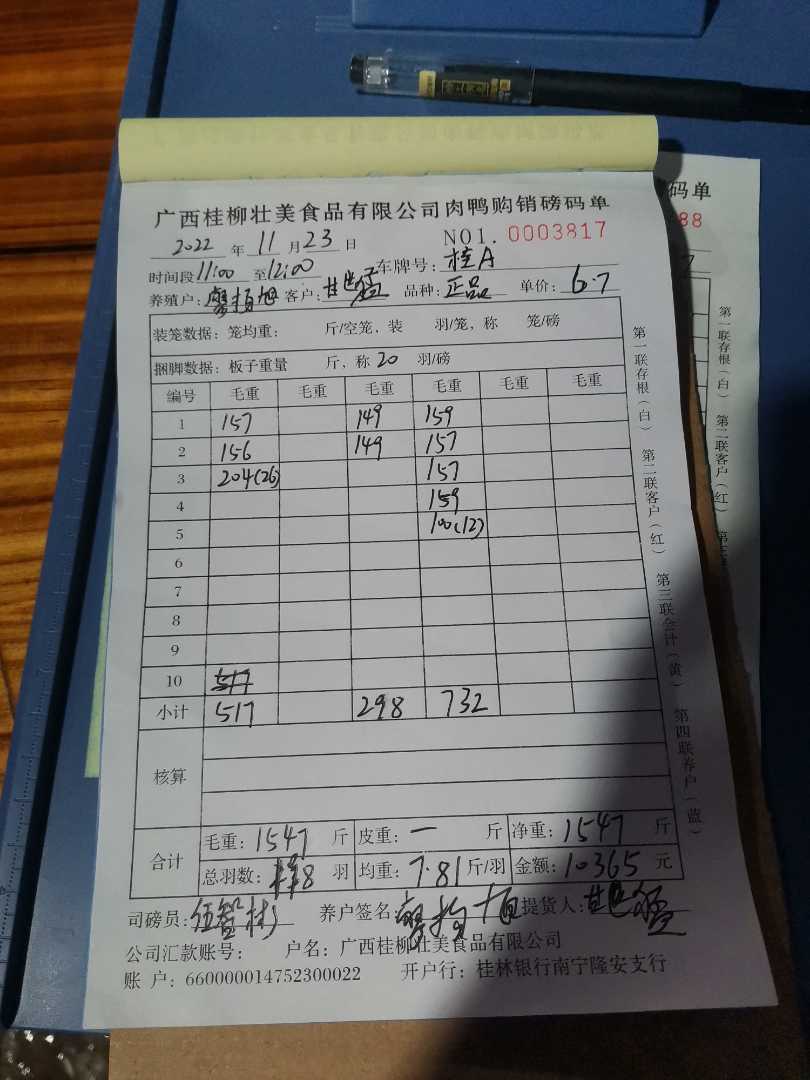 广西桂柳壮美食品有限公司肉鸭购销磅码单
2022 年 11 月 23 日 NO1. 0003817
时间段 11:00 至 12:00 车牌号: 桂A
养殖户: 客户: 品种: 正品 单价: 6.7
装笼数据: 笼均重: 斤/空笼, 装 羽/笼, 称 笼/磅
捆脚数据: 板子重量 斤, 称 20 羽/磅
编号 毛重 毛重 毛重 毛重 毛重 毛重
1 157 149 159
2 156 149 157
3 204(26) 157
4 159
5 100(12)
6
7
8
9
10 517
小计 517 298 732
核算
合计 毛重: 1547 斤 皮重: 一 斤 净重: 1547 斤
总羽数: 8 羽 均重: 7.81 斤/羽 金额: 10365 元
司磅员: 伍智彬 养户签名: 提货人:
公司汇款账号: 户名: 广西桂柳壮美食品有限公司
账 户: 660000014752300022 开户行: 桂林银行南宁隆安支行
第一联存根(白) 第二联客户(红) 第三联会计(黄) 第四联养户(蓝)
码单
88
第一联存根(白) 第二联客户(红)